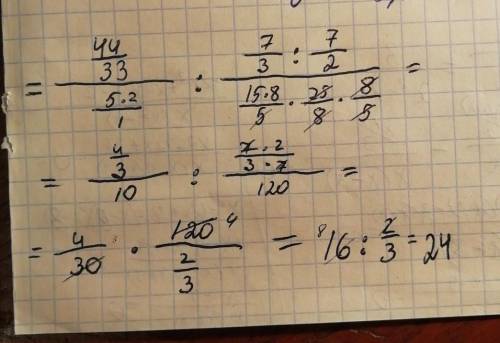 = 44/33 / 5·2/1 : 7/3 : 7/2 / 15·8/5 · 25/8 · 8/5 =
= 4/3 / 10 : 7·2/3·7 / 120 =
= 4/30 · 120 4 / 2/3 = 8 16 : 2/3 = 24